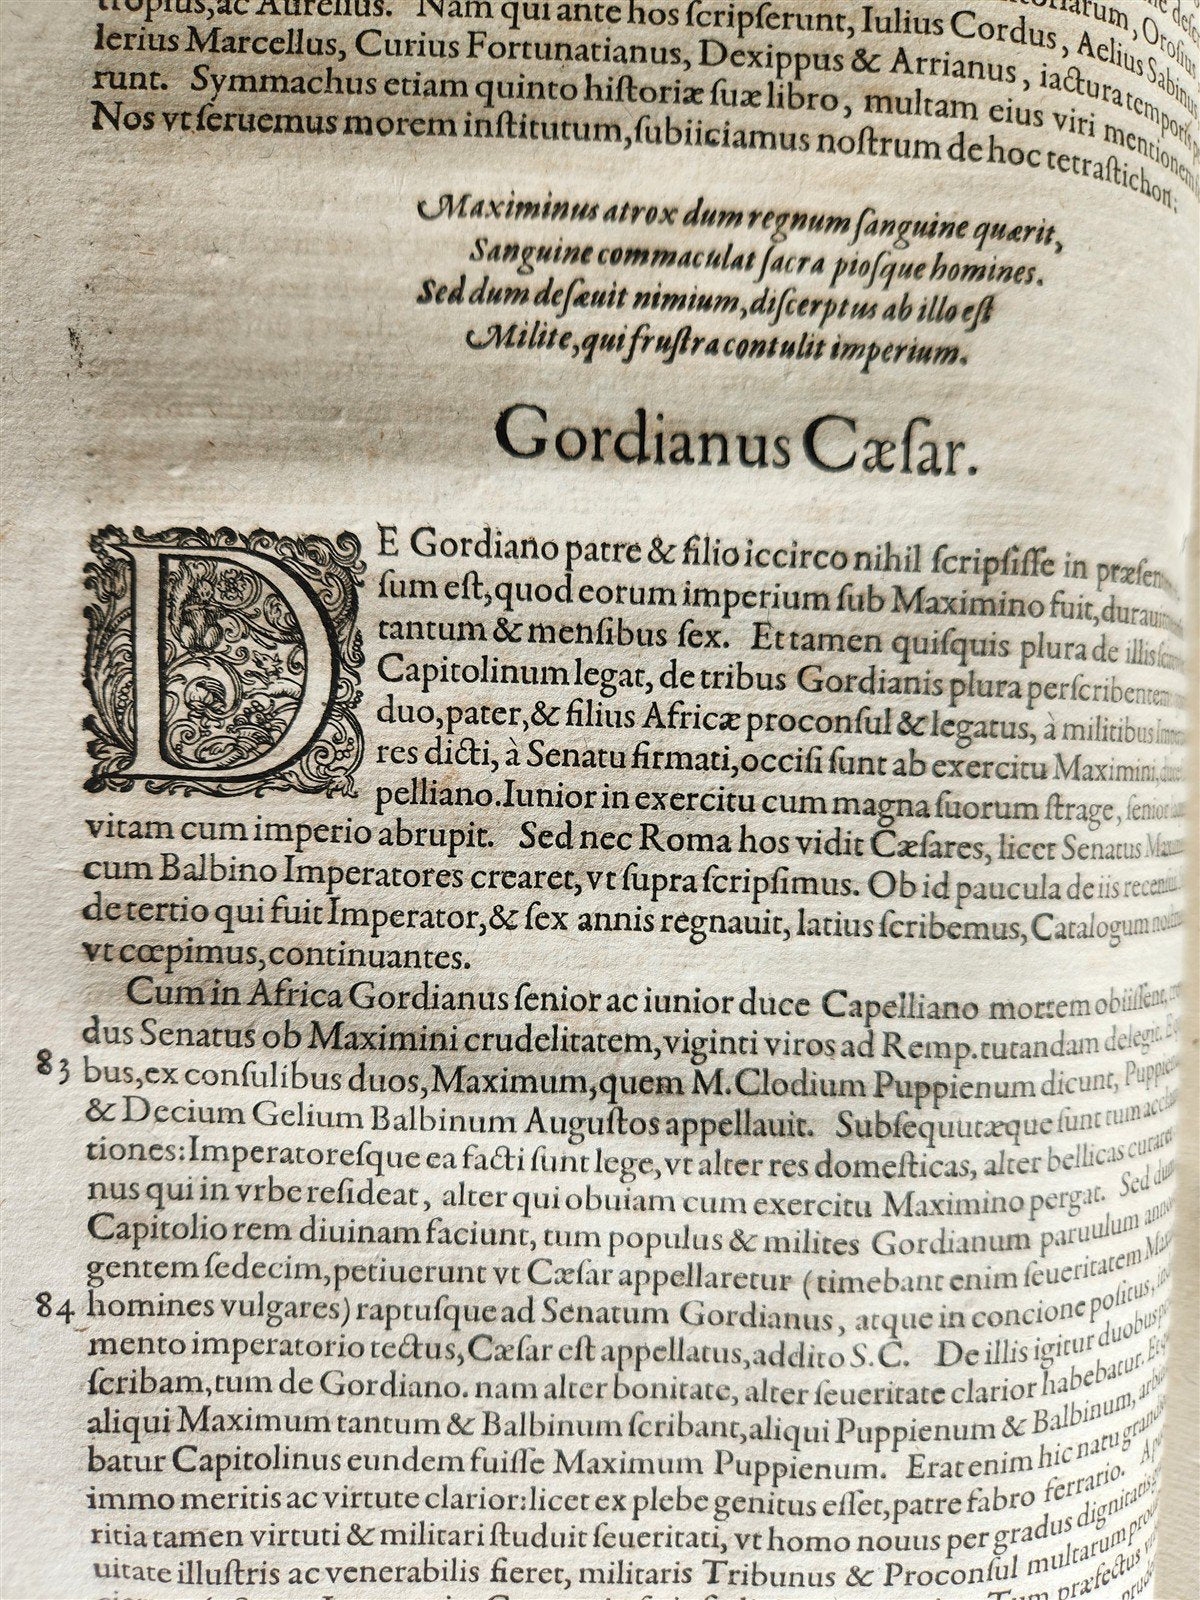 ac Aurelius. Nam qui ante hos ſcripſerunt, Iulius Cordus, Aelius Sabinus,
lerius Marcellus, Curius Fortunatianus, Dexippus & Arrianus, iactura temporis
runt. Symmachus etiam quinto hiſtoriæ ſuæ libro, multam eius viri mentionem
Nos vt ſeruemus morem inſtitutum, ſubiiciamus noſtrum de hoc tetraſtichon:
Maximinus atrox dum regnum ſanguine quærit,
Sanguine commaculat ſacra pioſque homines.
Sed dum deſæuit nimium, diſcerptus ab illo eſt
Milite, qui fruſtra contulit imperium.
Gordianus Cæſar.
DE Gordiano patre & filio iccirco nihil ſcripſiſſe in
ſum eſt, quod eorum imperium ſub Maximino fuit,
tantum & menſibus ſex. Et tamen quiſquis plura de illis
Capitolinum legat, de tribus Gordianis plura perſcribentem
duo, pater, & filius Africæ proconſul & legatus, à militibus
res dicti, à Senatu firmati, occiſi ſunt ab exercitu Maximini,
pelliano. Iunior in exercitu cum magna ſuorum ſtrage, ſenior
vitam cum imperio abrupit. Sed nec Roma hos vidit Cæſares, licet Senatus
cum Balbino Imperatores crearet, vt ſupra ſcripſimus. Ob id paucula de iis
de tertio qui fuit Imperator, & ſex annis regnauit, latius ſcribemus, Catalogum
vt cœpimus, continuantes.
Cum in Africa Gordianus ſenior ac iunior duce Capelliano mortem obiiſſent,
dus Senatus ob Maximini crudelitatem, viginti viros ad Remp. tutandam delegit.
83 bus, ex conſulibus duos, Maximum, quem M. Clodium Puppienum dicunt,
& Decium Gelium Balbinum Auguſtos appellauit. Subſequutæque ſunt tum
tiones: Imperatoreſque ea facti ſunt lege, vt alter res domeſticas, alter bellicas
nus qui in vrbe reſideat, alter qui obuiam cum exercitu Maximino pergat. Sed dum
Capitolio rem diuinam faciunt, tum populus & milites Gordianum paruulum
gentem ſedecim, petiuerunt vt Cæſar appellaretur (timebant enim ſeueritatem
84 homines vulgares) raptuſque ad Senatum Gordianus, atque in concione poſitus,
mento imperatorio tectus, Cæſar eſt appellatus, addito S.C. De illis igitur duobus
ſcribam, tum de Gordiano. nam alter bonitate, alter ſeueritate clarior habebatur.
aliqui Maximum tantum & Balbinum ſcribant, aliqui Puppienum & Balbinum,
batur Capitolinus eundem fuiſſe Maximum Puppienum. Erat enim hic natu
immo meritis ac virtute clarior: licet ex plebe genitus eſſet, patre fabro ferrario.
ritia tamen virtuti & militari ſtuduit ſeueritati, vt homo nouus per gradus dignitatis
uitate illuſtris ac venerabilis fieret, militaris Tribunus & Proconſul multarum
Tum præfectus